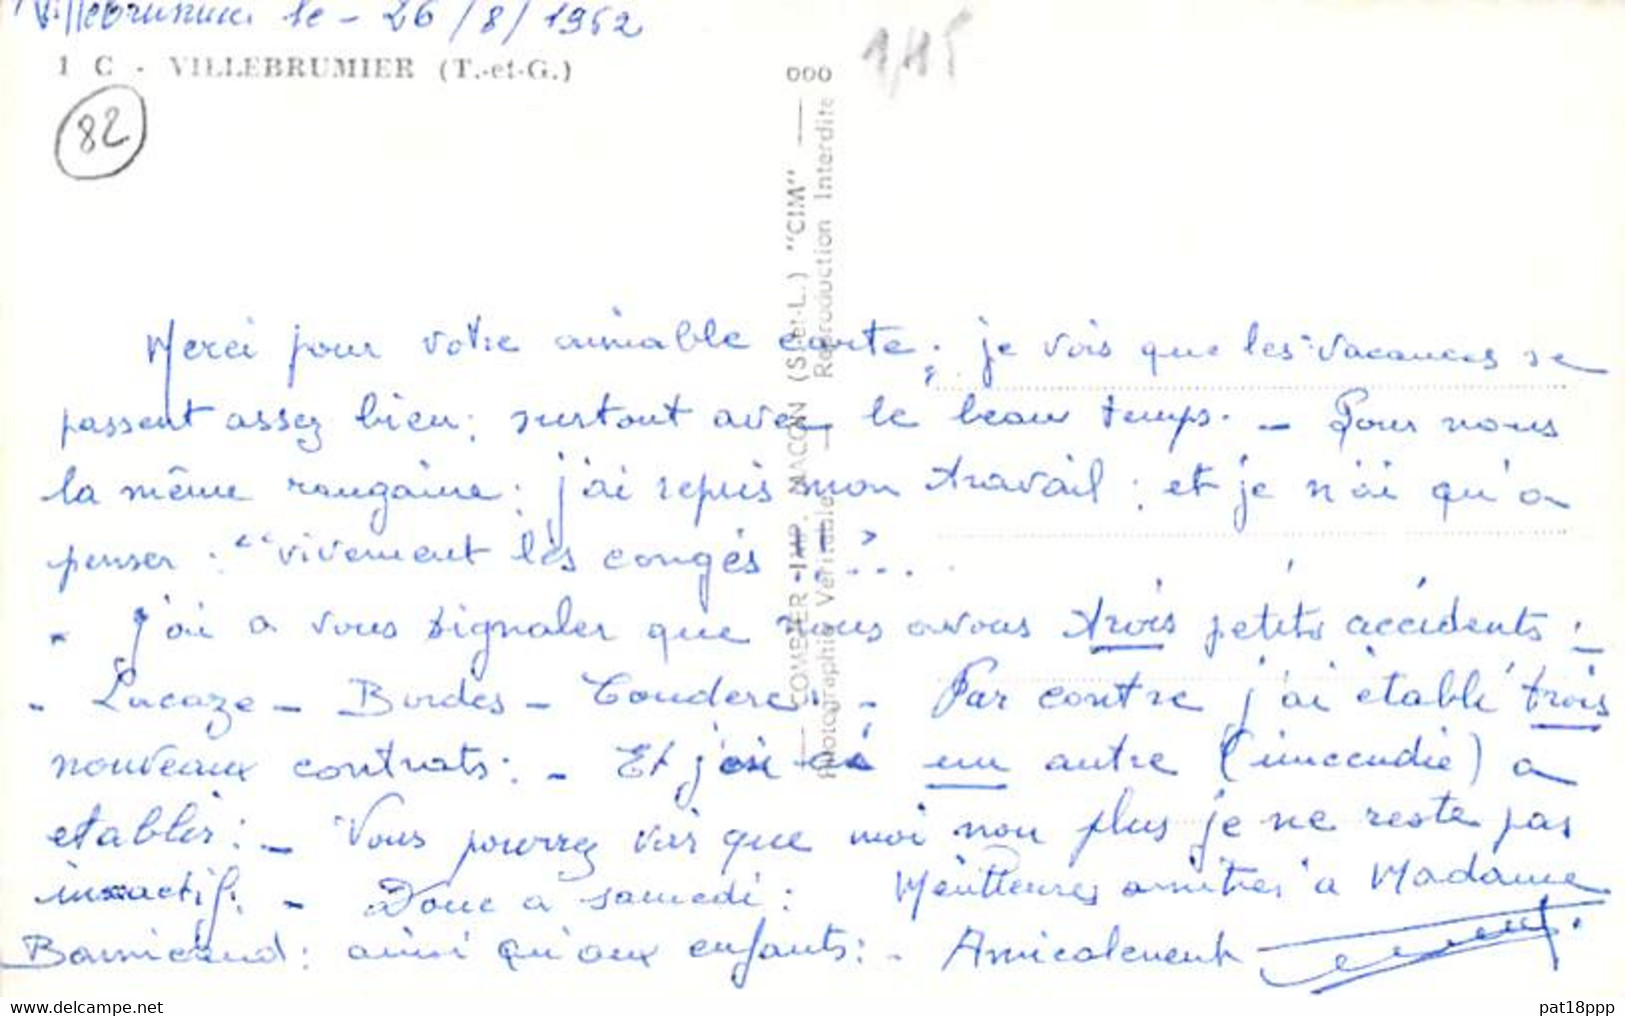 Villebrumier le - 26/8/1962
1 C - VILLEBRUMIER (T.-et-G.)
82
000
COMBIER IMP. MACON (S.-et-L.) "CIM"
Photographie Véritable — Reproduction Interdite
Merci pour votre aimable carte; je vois que les vacances se
passent assez bien; surtout avec le beau temps. - Pour nous
la même rengaine: j'ai repris mon travail; et je n'ai qu'a
penser: "vivement les congés"...
- J'ai a vous signaler que nous avons trois petits accidents:
- Lacaze - Bordes - Couderc. - Par contre j'ai établi trois
nouveaux contrats: - Et j'ai un autre (incendie) a
etablir: - Vous pourrez voir que moi non plus je ne reste pas
inactif. - Donc a samedi: Meilleures amitiés a Madame
ainsi qu'aux enfants: - Amicalement
www.delcampe.net
pat18ppp